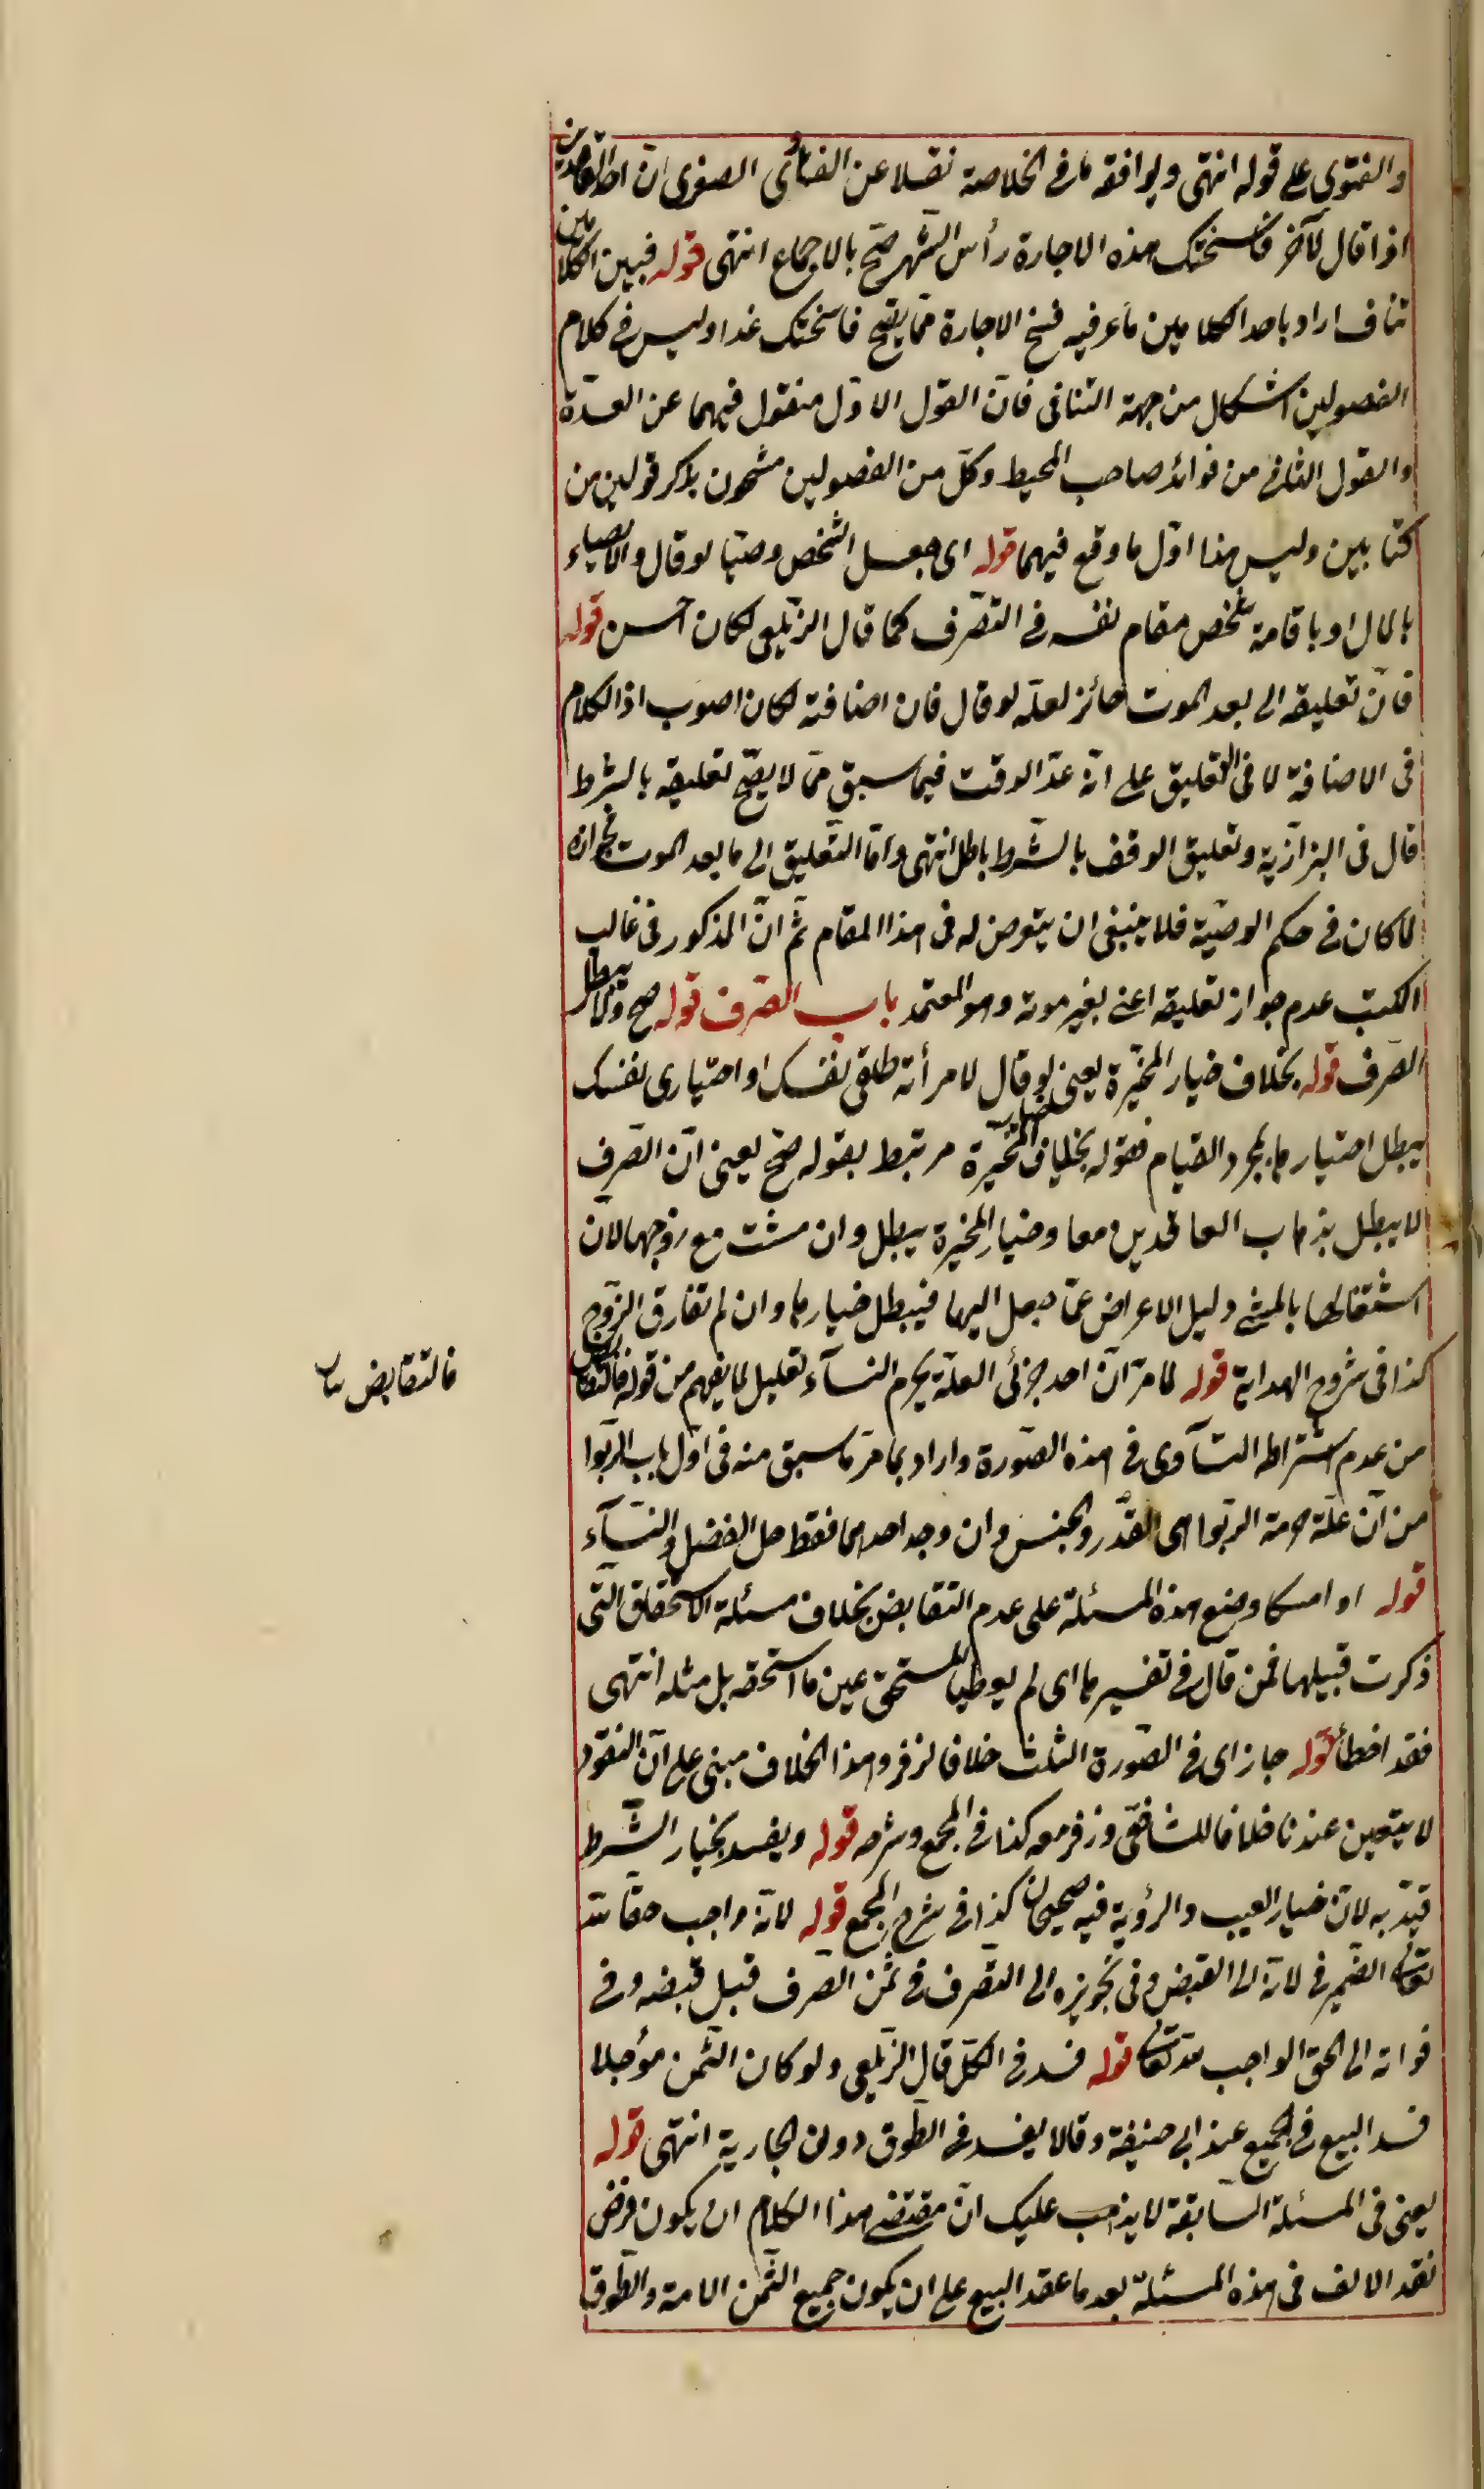 والفتوى على قوله انتهى ويوافقه ما فى الخلاصة نقلا عن الفتاوى الصغرى ان احد العاقدين
اذا قال لآخر فاسختك هذه الاجارة رأس الشهر صحّ بالاجماع انتهى قوله فبين الكلامين
تناف اراد باحد الكلامين ما مر فيه فسخ الاجارة ممّا يصحّ فاسختك غدا وليس فى كلام
الفصولين اشكال من جهة التنافى فانّ القول الاوّل منقول فيهما عن العدّة
والقول الثانى من فوائد صاحب المحيط وكلّ من الفصولين مشحون بذكر قولين من
كتابين وليس هذا اوّل ما وقع فيهما قوله اى جعل الشخص وصيّا لو قال والايصاء
بالمال او باقامة شخص مقام نفسه فى التصرّف كما قال الزيلعى لكان احسن قوله
فانّ تعليقه الى بعد الموت جائز لعلّه لو قال فان اضافته لكان اصوب اذ الكلام
فى الاضافة لا فى التعليق على انّه عدّ الوقت فيما سبق ممّا لا يصحّ تعليقه بالشرط
قال فى البزازيّة وتعليق الوقف بالشّرط باطل انتهى وامّا التّعليق الى ما بعد الموت
لما كان فى حكم الوصيّة فلا ينبغى ان يتعرض له فى هذا المقام ثمّ انّ المذكور فى غالب
الكتب عدم جواز تعليقه اعنى بغير موته وهو المعتمد باب الصّرف قوله صح ولا يبطل
الصّرف قوله بخلاف خيار المخيّرة يعنى لو قال لامرأته طلقى نفسك او اختيارى نفسك
يبطل اختيارها بمجرد القيام فقوله بخلاف خيار المخيّرة مرتبط بقوله صحّ يعنى انّ الصّرف
لا يبطل بذهاب العاقدين معا وخيار المخيّرة يبطل وان مشت مع زوجها لانّ
اشتغالها بالمشى دليل الاعراض عمّا جعل اليها فيبطل خيارها وان لم تفارق الزّوج
كذا فى شروح الهداية قوله لما مرّ انّ احد جزئى العلّة يحرم النسآء تعليل لما يفهم من قوله فالتقابض
من عدم اشتراط التساوى فى هذه الصّورة واراد بما مرّ ما سبق منه فى اوّل باب الربوا
من انّ علّة حرمة الربوا هى القدر والجنس وان وجد احدهما فقط حل الفضل لا النسآء
قوله او امسكا وضع هذه المسئلة على عدم التقابض بخلاف مسئلة الاستحقاق التّى
ذكرت قبيلها فمن قال فى تفسيرها اى لم يعطيا المستحق عين ما استحقه بل مثله انتهى
فقد اخطأ قوله جاز اى فى الصّورة الثلث خلافا لزفر وهذا الخلاف مبنى على انّ النقود
لا يتعين عندنا خلافا للشافعىّ وزفر معه كذا فى المجمع وشرحه قوله ويفسد بخيار الشّرط
قيّد به لانّ خيار العيب والرؤية فيه صحيحان كذا فى شرح المجمع قوله لانّه واجب حقا لله
تعالى الضّمير فى لانّه الى القبض وفى تجويزه الى التّصرف فى ثمن الصّرف قبل قبضه وفى
فواته الى الحق الواجب لله تعالى قوله فسد فى الكلّ قال الزّيلعى ولو كان الثّمن مؤجلا
فسد البيع فى الجميع عند ابى حنيفة وقالا يفسد فى الطّوق دون الجارية انتهى قوله
يعنى فى المسئلة السّابقة لا يذهب عليك انّ مقتضى هذا الكلام ان يكون فرض
نقد الالف فى هذه المسئلة بعد ما عقد البيع على ان يكون جميع الثّمن الامة والطّوق
فالتقابض